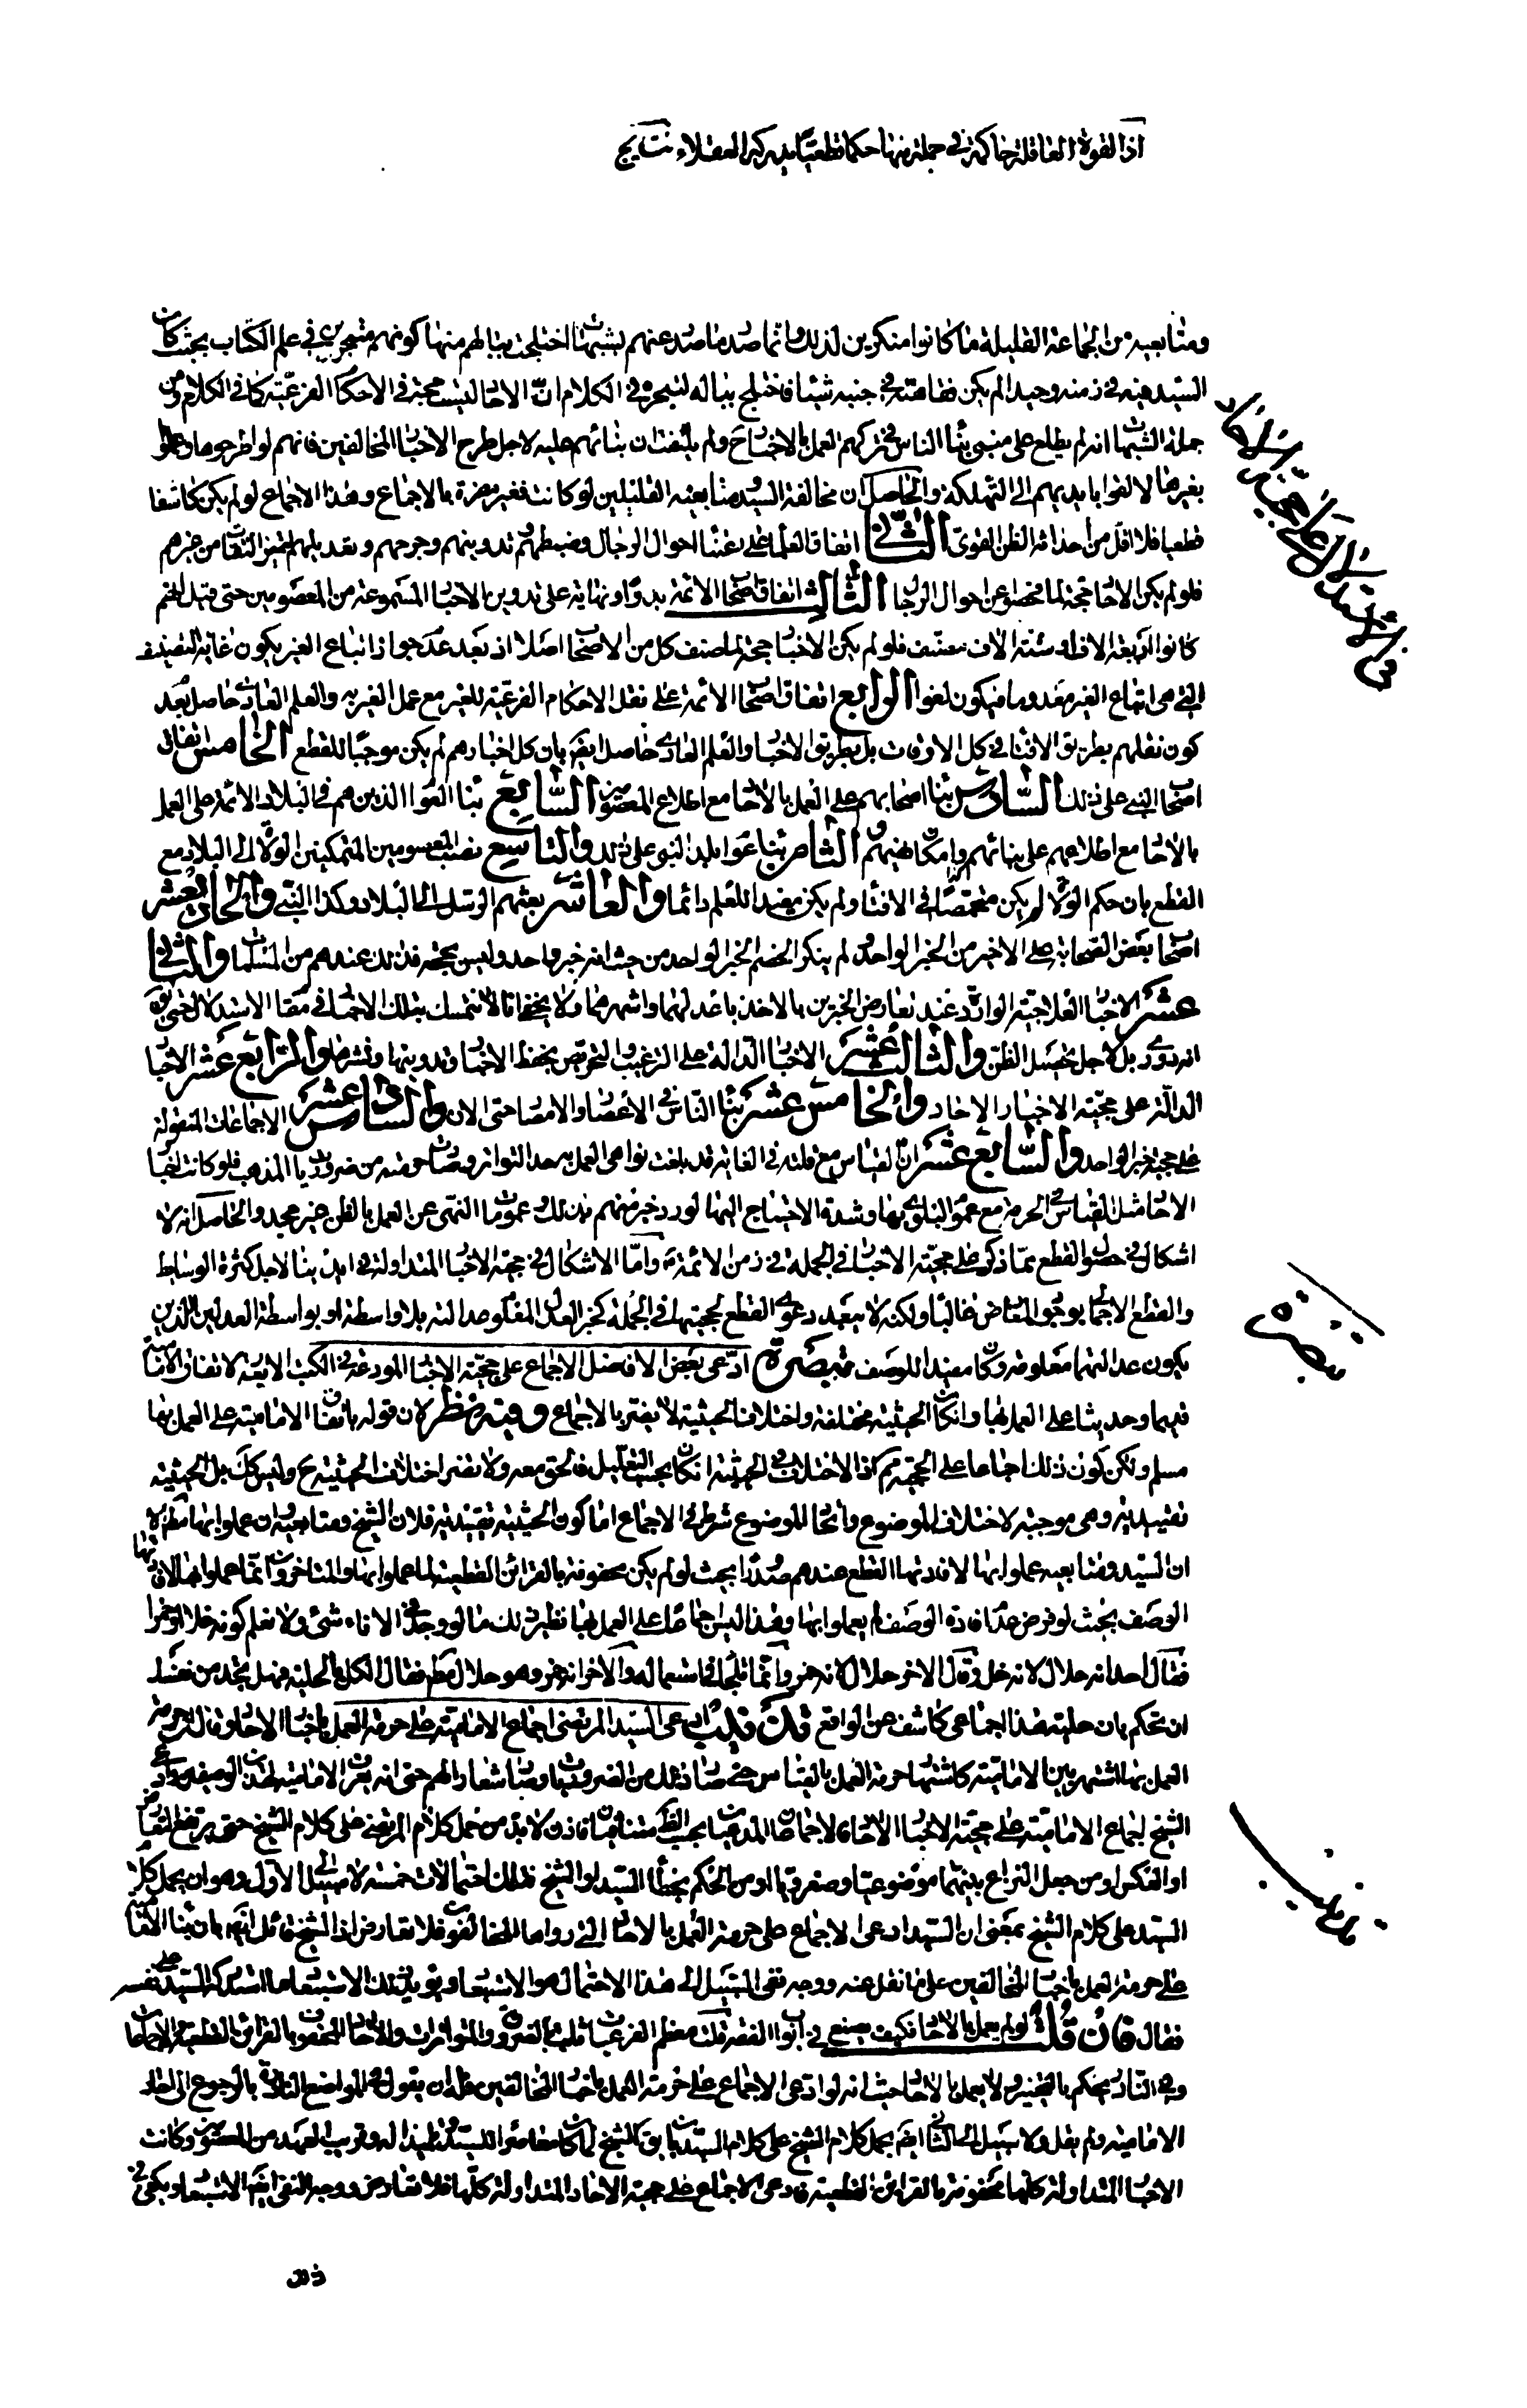 اذا القوة العاقلة حاكمة في جملة منها حكما قطعيا يدركه العقلاء نتايج
ومتابعيه من الجماعة القليلة ما كانوا منكرين لذلك وانما صدر ما صدر عنهم لشبهات اختلجت ببالهم منها كونهم متبحرين في علم الكتاب بحيث كان
السيد فيه في زمنه وحيدا لم يكن فقاهته في جنبه شيئا فاختلج بباله لتبحره في الكلام ان الاحاد ليست حجة في الاحكام الفرعية كما في الكلام ومن
جملة الشبهات انه لم يطلع على مبنى بناء الناس في تركهم العمل بالاخبار ولم يلتفت ان بنائهم عليه لاجل طرح الاخبار المخالفين فانهم لو اطرحوها وعملوا
بغيرها لالقوا بايديهم الى التهلكة والحاصل ان مخالفة السيد ومتابعيه القليلين لو كانت فغير مضرة بالاجماع وهذا الاجماع لو لم يكن كاشفا
قطعيا فلا اقل من احداثه الظن القوى الثاني اتفاق العلماء على اعتناء احوال الرجال وضبطهم وتدوينهم وجرحهم وتعديلهم لتميز الثقات من غيرهم
فلو لم يكن الاحاد حجة لما فحصوا عن احوال الرجال الثالث اتفاق اصحاب الائمة بدوا ونهاية على تدوين الاخبار المسموعة من المعصومين حتى قيل انهم
كانوا اربعة الاف او ستة الاف مصنف فلو لم يكن الاخبار حجة لما صنف كل من الاصحاب اصلا اذ بعد عدم جواز اتباع الغير يكون غاية التصنيف
التي هي اتباع الغير مفقودا فيكون لغوا الرابع اتفاق اصحاب الائمة على نقل الاحكام الفرعية للغير مع عمل الغير به والعلم العادي حاصل بعد
كون نقلهم بطريق الافتاء في كل الاوقات بل بطريق الاخبار والعلم العادي حاصل ايضا بان كل اخبارهم لم يكن موجبا للقطع الخامس اتفاق
اصحاب النبي على ذلك السادس بناء اصحابهم على العمل بالاحاد مع اطلاع المعصومين السابع بناء العوام الذين هم في البلاد الائمة على العمل
بالاحاد مع اطلاعهم على بنائهم وامكان نهيهم الثامن بناء عوام بلد النبي على ذلك والتاسع نصب المعصومين المتمكنين الولاة الى البلاد مع
القطع بان حكم الولاة لم يكن مختصا في الافتاء ولم يكن مفيدا للعلم دائما والعاشر بعثهم الرسل الى البلاد وكذا النبي والحادي عشر
اصحاب بعض الصحابة على الاخير من الخبر الواحد ولم ينكر الخصم الخبر الواحد من حيث انه خبر واحد وليس بحجة فذلك عندهم من المسلمات والثاني
عشر الاخبار العلاجية الواردة عند تعارض الخبرين بالاخذ باعدلهما واشهرهما ولا يخفى انا لا نتمسك بتلك الاخبار في مقام الاستدلال حتى يقال
انه دوري بل لاجل تحصيل الظن والثالث عشر الاخبار الدالة على الترغيب والتحريص بحفظ الاخبار وتدوينها ونشرها والرابع عشر الاخبار
الدالة على حجية الاخبار الاحاد والخامس عشر بناء الناس في الاعصار والامصار حتى الان والسادس عشر الاجماعات المنقولة
على حجية خبر الواحد والسابع عشر ان القياس مع قلته في الغاية قد بلغت نواهى العمل به حد التواتر وصار حرمته من ضروريات المذهب فلو كانت اخبار
الاحاد مثل القياس في الحرمة مع عموم البلوى بها وشدة الاحتياج اليها لورد خبر منهم بذلك وعمومات النهى عن العمل بالظن غير مجد والحاصل انه لا
اشكال في حصول القطع مما ذكر على حجية الاخبار في الجملة في زمن الائمة واما الاشكال في حجية الاخبار المتداولة في ايدينا لاجل كثرة الوسايط
والقطع الاجمالي بوجود المعارض غالبا ولكنه لا يبعد دعوى القطع لحجيتها في الجملة كخبر العدل المعلوم عدالته بلا واسطة او بواسطة العدلين الذين
يكون عدالتهما معلومة وكان مفيدا للوصف تبصرة ادعى بعض الافاضل الاجماع على حجية الاخبار المودعة في الكتب الاربعة لاتفاق الامامية
قديما وحديثا على العمل بها وان كان الحيثية مختلفة واختلاف الحيثية لا يضر بالاجماع وفيه نظر لان قوله باتفاق الامامية على العمل بها
مسلم ولكن كون ذلك اجماعا على الحجية مم اذا الاختلاف في الحيثية ان كان بحسب التعليل فالحق معه ولا يضر اختلاف الحيثية ح وليس كك بل الحيثية
تقييدية وهي موجبة لاختلاف الموضوع واتحاد الموضوع شرط في الاجماع اما كون الحيثية تقييدية فلان الشيخ ومتابعيه ان عملوا بها مط الا
ان السيد ومتابعيه عملوا بها لافادتها القطع عندهم صدورا بحيث لو لم يكن محفوفة بالقرائن القطعية لما عملوا بها والمتاخرون انما عملوا بها لافادتها
الوصف بحيث لو فرض عدم افادة الوصف لم يعملوا بها وهذا ليس اجماعا على العمل بها نظير ذلك ما لو وجد في الاناء شئ ولا نعلم كونه خلا او خمرا
فقال احد انه حلال لانه خل وقال الاخر حلال لانه خمر وانما نلجأ في استعماله والاخر انه خمر وهو حلال مط فقال الكل بالحلية فهل تجد من نفسك
ان تحكم بان حلية هذا اجماعي كاشف عن الواقع فذلكة ادعى السيد المرتضى اجماع الامامية على حرمة العمل باخبار الاحاد وقال حرمة
العمل بها اشتهر بين الامامية كاشتهار حرمة العمل بالقياس حتى صار ذلك من الضروريات وصار شعارا لهم حتى انه يعرف الامامية بهذا الوصف وادعى
الشيخ اجماع الامامية على حجية الاخبار الاحاد فالاجماعان المدعيان بحسب الظ متنافيان فاذن لا بد من حمل كلام المرتضى على كلام الشيخ حتى يرتفع التعارض
او العكس او من جعل النزاع بينهما موضوعيا وصغرويا او من الحكم بخطأ السيد او الشيخ فتلك احتمالات خمسة لا سبيل الى الاول وهو ان يحمل كلام
السيد على كلام الشيخ بمعنى ان السيد ادعى الاجماع على حرمة العمل بالاحاد التي رواها المخالفون فلا تعارض اذ الشيخ قائل ايضا بان بناء الامامية
على حرمة العمل باخبار المخالفين على ما نقل عنه ووجه نفى السبيل الى هذا الاحتمال هو الاستبعاد ويؤيد ذلك الاستبعاد ما استدركه السيد على نفسه
فقال فان قلت لو لم يعمل بالاحاد فكيف يصنع في ابواب الفقه قلت معظم الفرعيات ثابت بالضرورة والمتواترات والاخبار المحفوفة بالقرائن القطعية والاجماعات
وفي النادر يحكم بالتخيير ولا يعمل بالاحاد حيث انه لو ادعى الاجماع على حرمة العمل باخبار المخالفين فله ان يقول في المواضع النادرة بالرجوع الى احاد
الامامية ولم يقل ولا سبيل الى الثاني ايضا بحمل كلام الشيخ على كلام السيد بان يق الشيخ لما كان معاصرا للسيد وتلميذا له وقريب العهد من المعصومين وكانت
الاخبار المتداولة كلها محفوفة بالقرائن القطعية فادعى الاجماع على حجية الاحاد المتداولة كلها فلا تعارض ووجه النفى ايضا الاستبعاد ويكفى في
تبصرة
تذنيب
ذلك